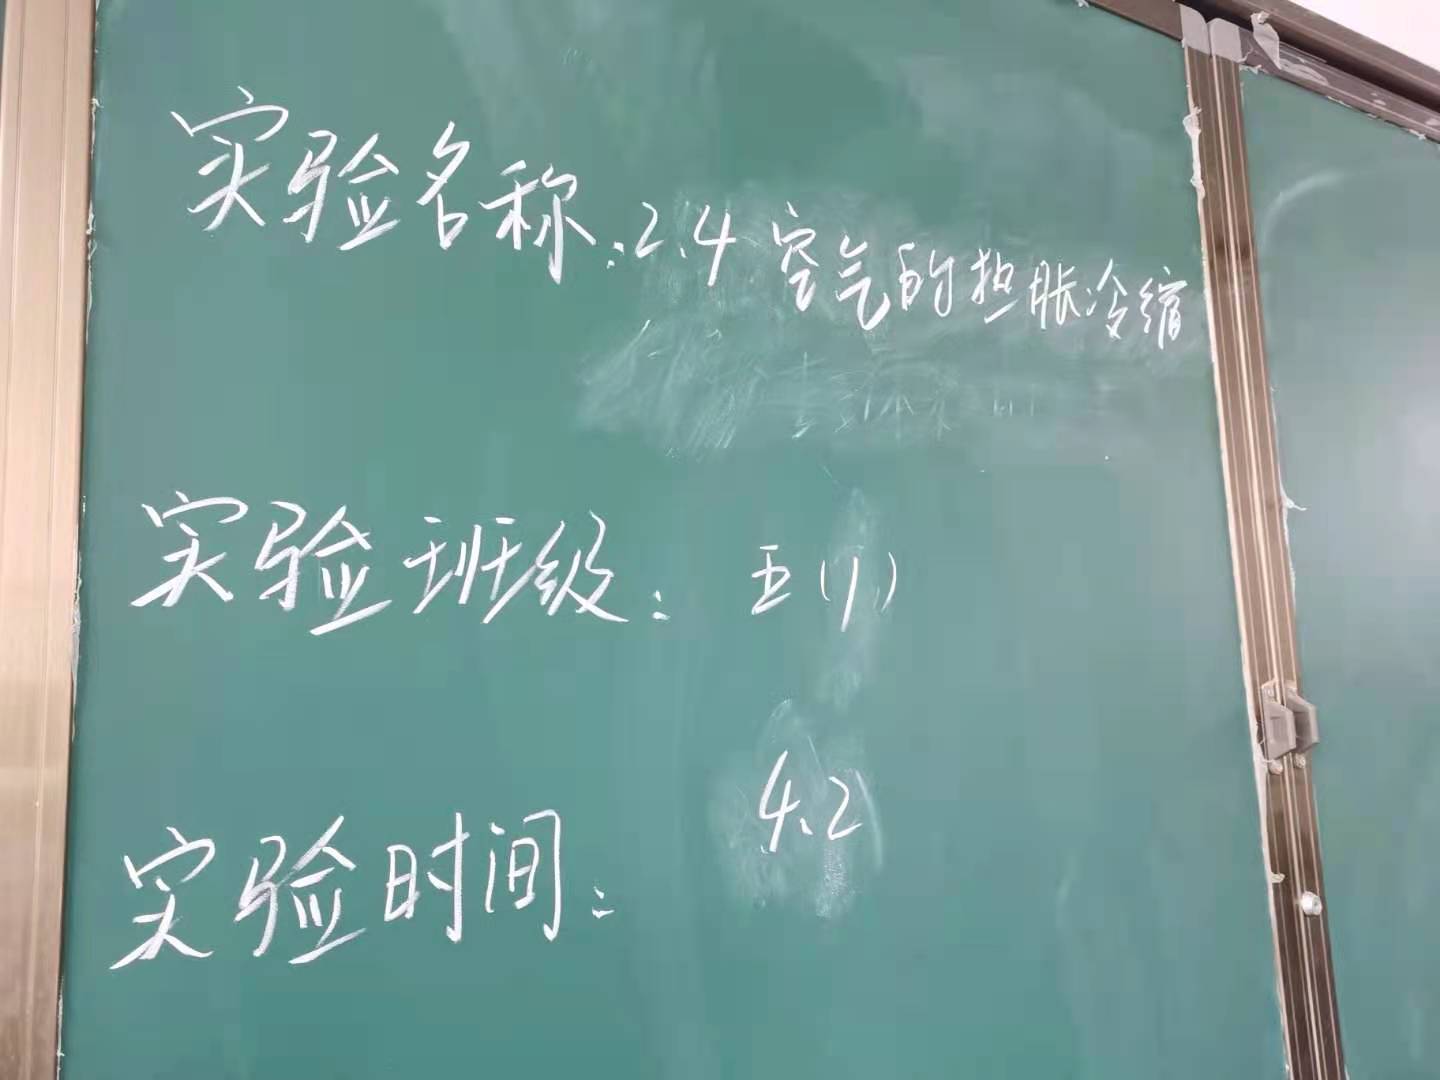 实验名称:2.4 空气的热胀冷缩
实验班级: 五(1)
实验时间: 4.2